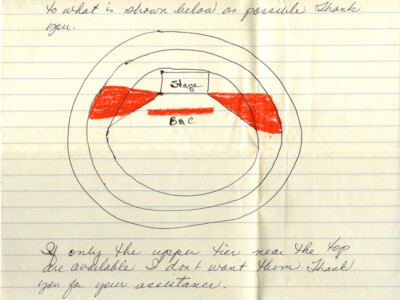 to what is shown below as possible Thank
you.
Stage
B or C
If only the upper tier near the top
are available I don't want them. Thank
you for your assistance.